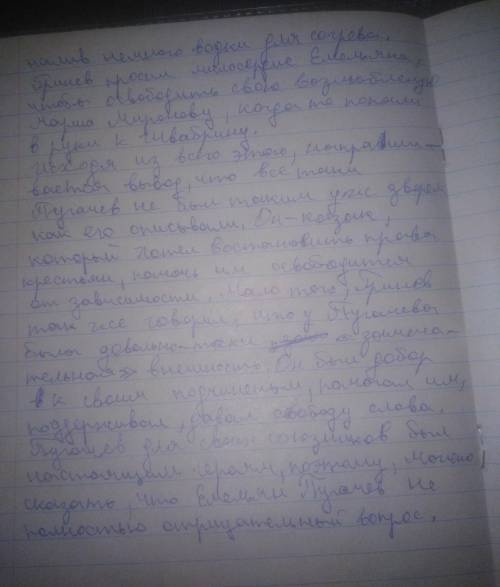 налив немного водки для согрева.
Гринев просит милосердие Емельяна,
чтобы освободить свою возлюбленную
Марью Миронову, когда та попала
в руки к Швабрину.
Исходя из всего этого, напраши-
вается вывод, что всё таки
Пугачев не был таким уж зверем
как его описывали. Он - казак,
который хотел востановить права
крестьян, помочь им освободится
от зависимости. Мало того, Гринев
так же говорил, что у Пугачева
была довольно-таки «замеча-
тельная» внешность. Он был добр
к своим подчиненым, помогал им,
поддерживал, давал свободу слова.
Пугачев для своих союзников был
настоящим героем, поэтому, можно
сказать, что Емельян Пугачев не
полностью отрицательный вопрос.